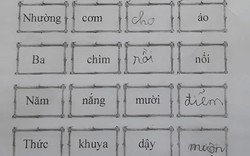 Nhường cơm cho áo
Ba chìm rồi nổi
Năm nắng mười điểm
Thức khuya dậy muộn